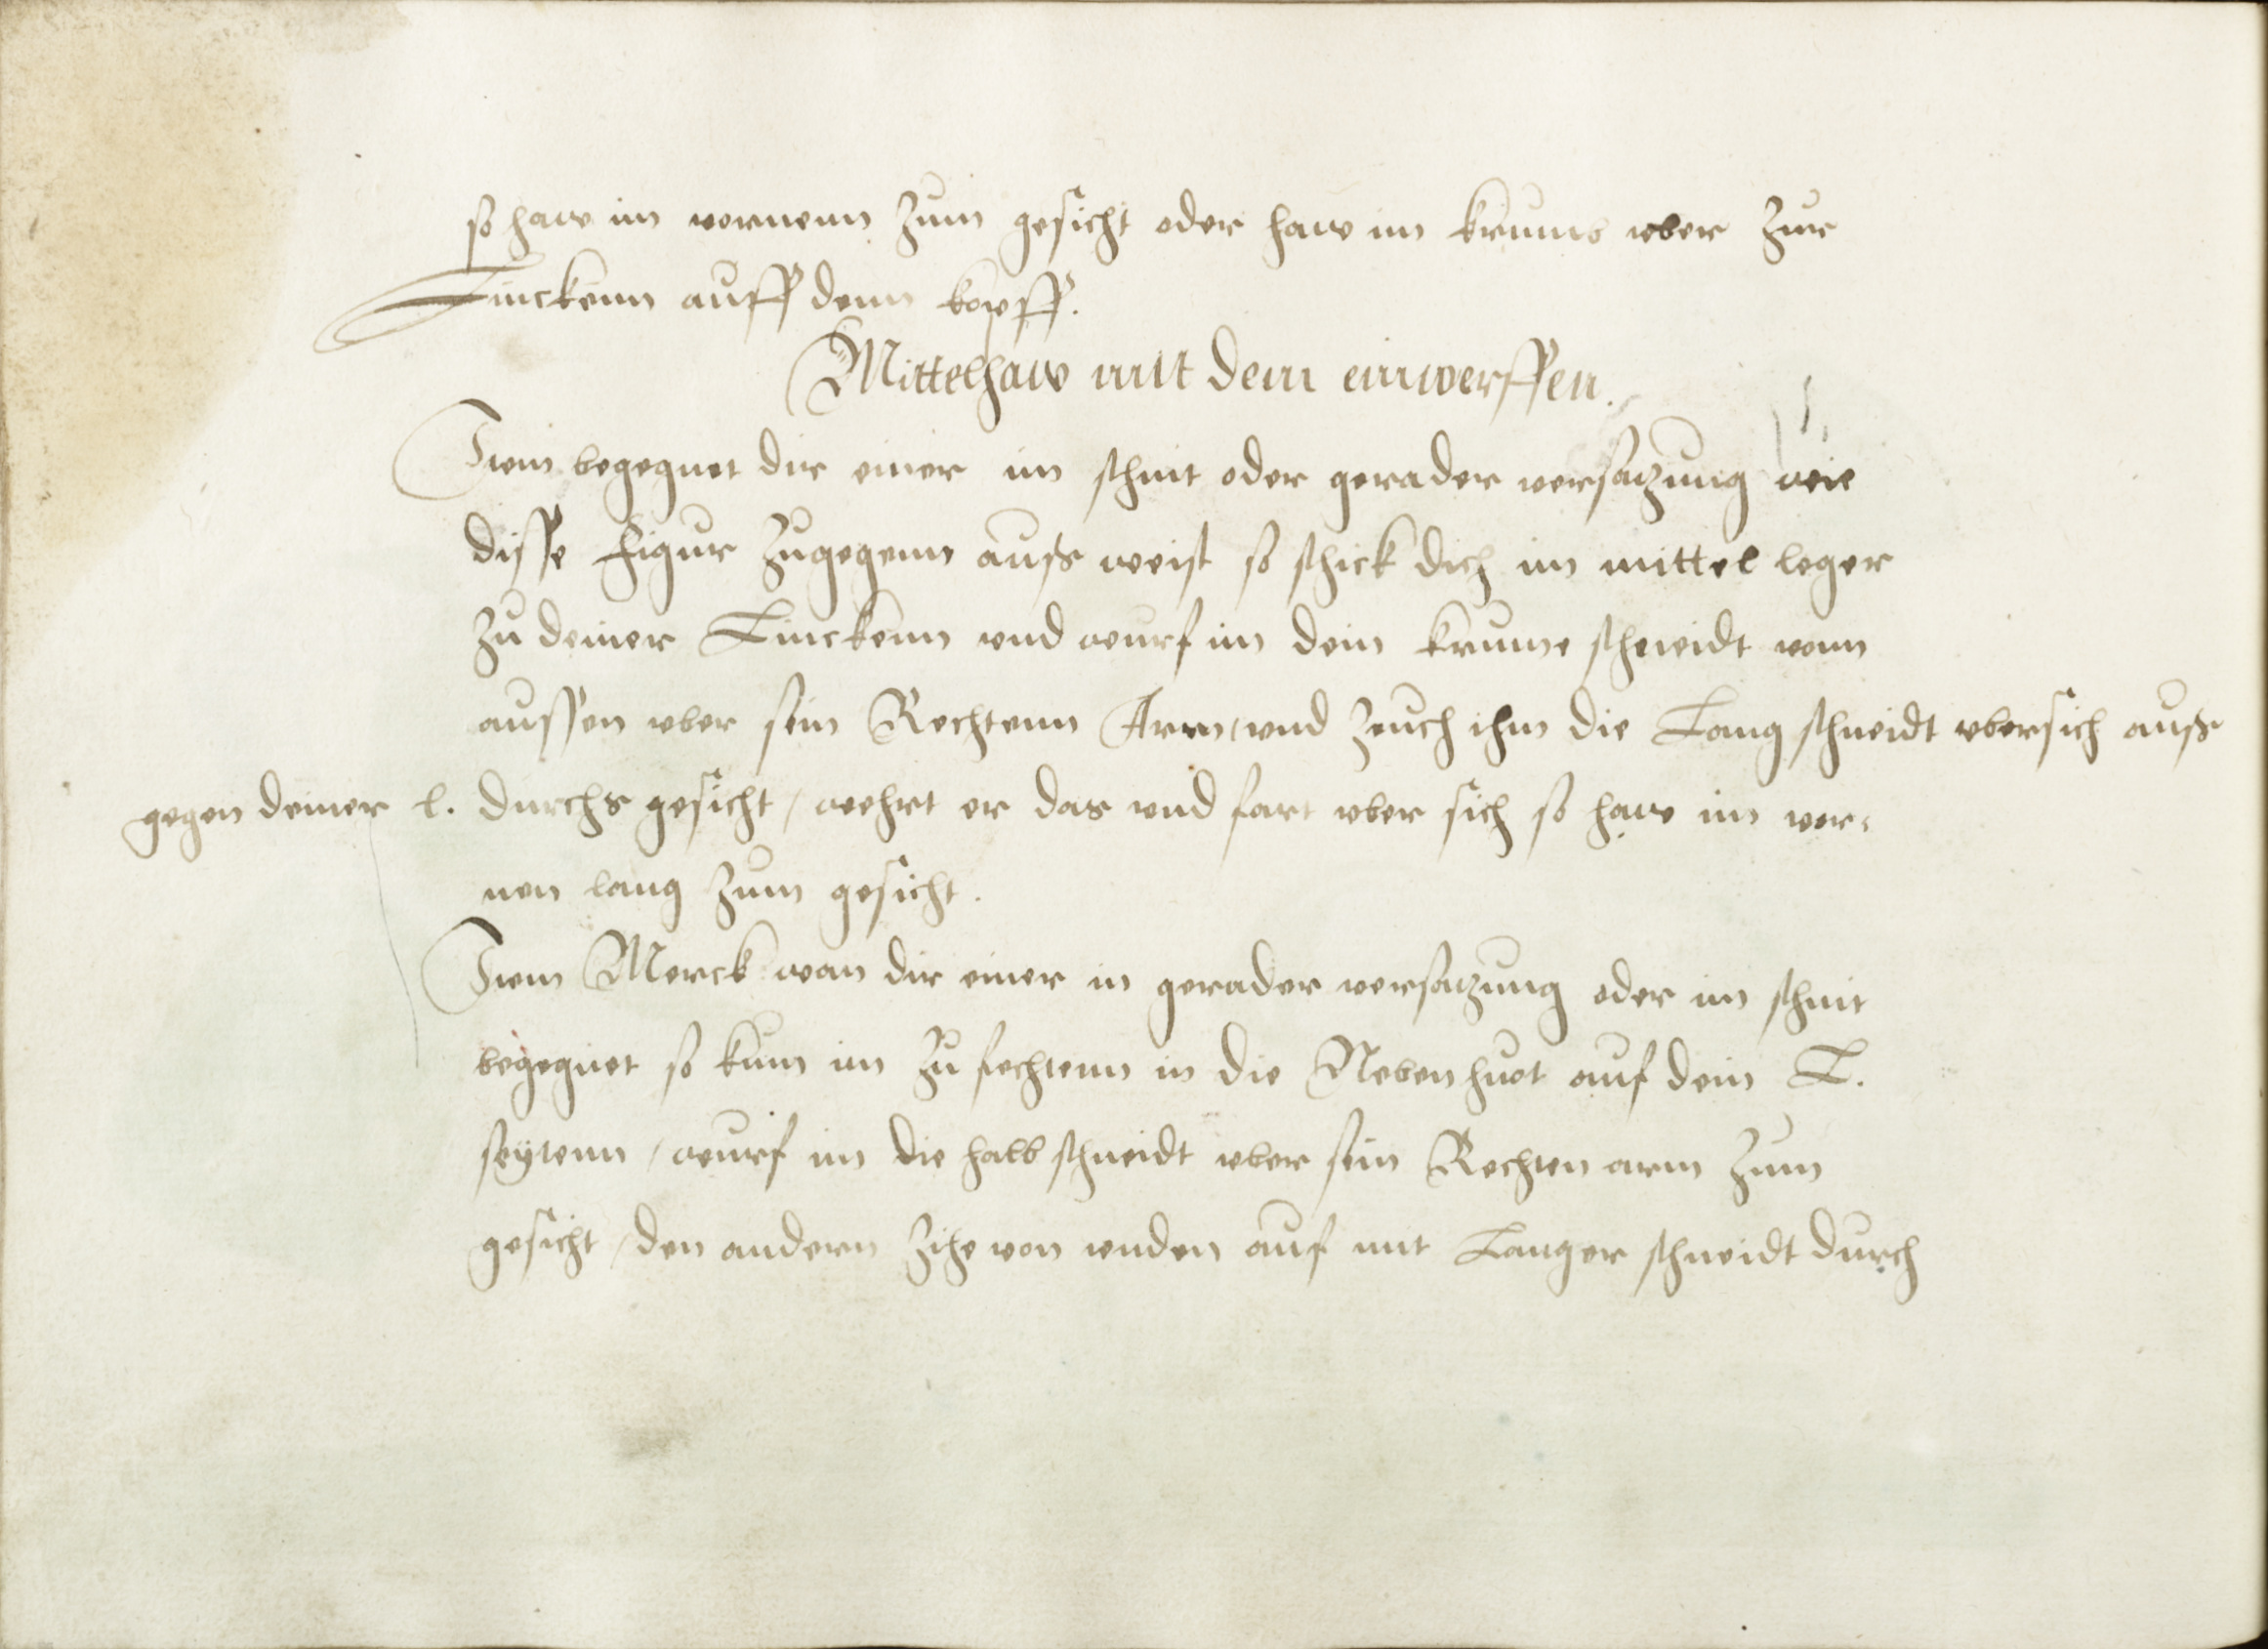 so haw im vornenn zum gesicht oder haw im krums vber zur
Linckenn auff denn kopff.
Mittelhaw mit dem einwerffen.
Item begegnet dir einer im schnit oder gerader versatzung wie
disse figur zugegenn auß weist so schick dich im mittel leger
zu deiner Linckenn vnd wurf im dein krume schneidt vonn
aussen vber sein Rechtenn Arm vnd zeuch ihm die Lang schneidt vbersich auß
gegen deiner l. durchs gesicht / wehrt er das vnd fart vber sich so haw im vor=
nen lang zum gesicht.
Item Merck wan dir einer in gerader versatzung oder im schnit
begegnet so kum im zu fechtenn in die Nebenhuot auf dein L.
seytenn / wurf im die halb schneidt vber sein Rechten arm zum
gesicht / den andern zihe von vnden auf mit Langer schneidt durch